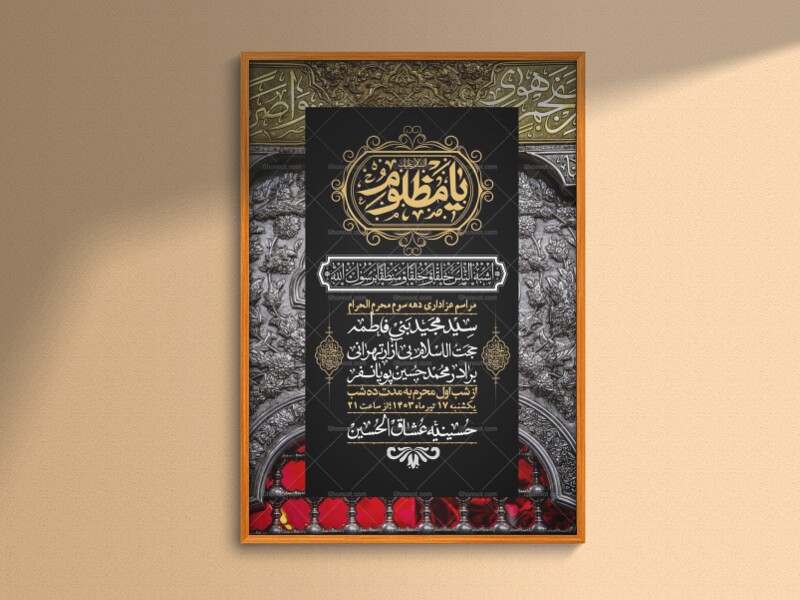 یا مظلوم
اشبه الناس خلقا و خلقا و منطقا برسول الله
مراسم عزاداری دهه سوم محرم الحرام
سید مجید بنی فاطمه
حجت الاسلام بی آزار تهرانی
برادر محمد حسین پویانفر
از شب اول محرم به مدت ده شب
یکشنبه ۱۷ تیر ماه ۱۴۰۳ از ساعت ۲۱
حسینیه عشاق الحسین